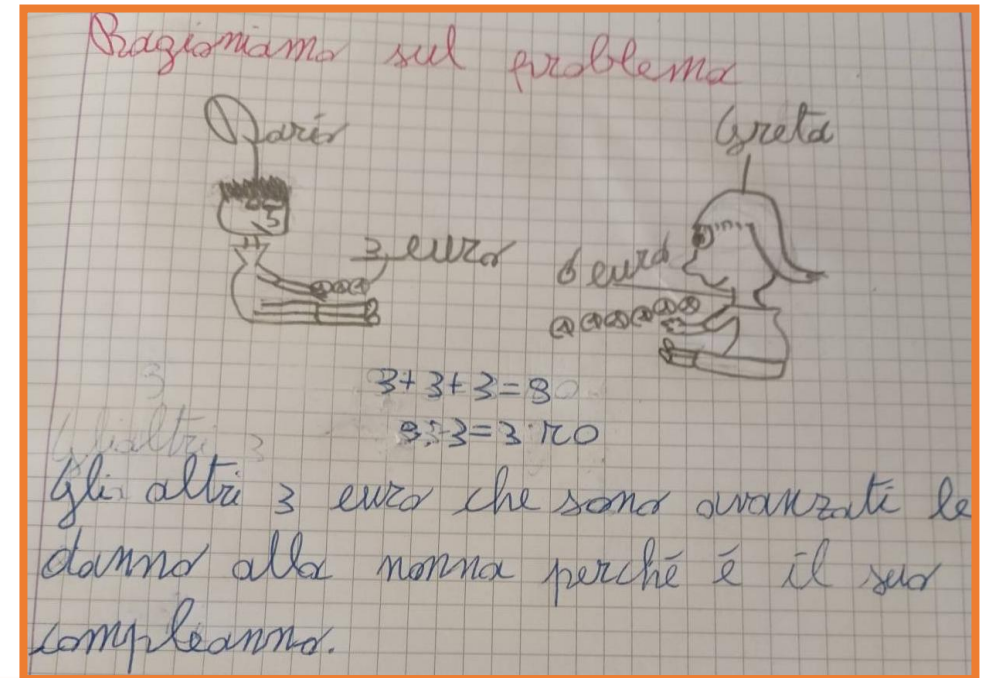 Ragioniamo sul problema
Dario Greta
3 euro 6 euro
3+3+3=9
9:3=3 r0
Gli altri 3
Gli altri 3 euro che sono avanzati le
danno alla nonna perché é il suo
compleanno.